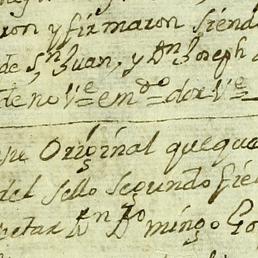 ron y firmaron Siend
de Sn Juan, y Dn Joseph
de no Ve em do dor Ve
Original que qua
del sello segundo
Dn Domingo Go